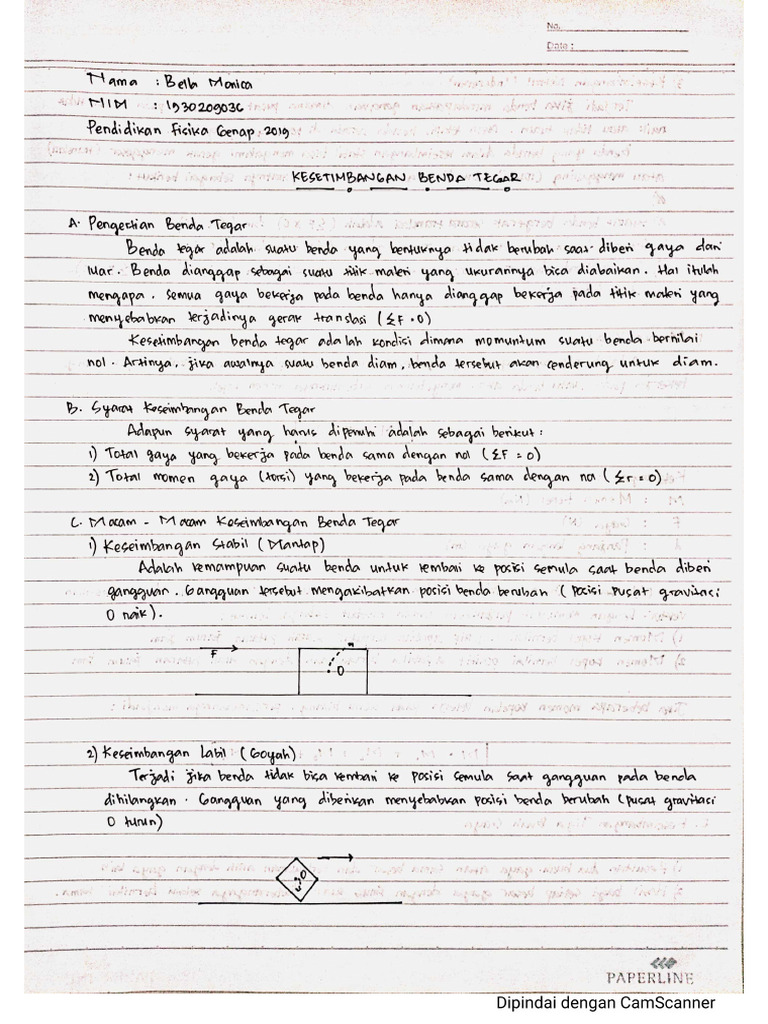 No.
Date :
Nama : Bella Monica
NIM : 1930209036
Pendidikan Fisika Genap, 2019
KESETIMBANGAN BENDA TEGAR
A. Pengertian Benda Tegar
Benda tegar adalah suatu benda yang bentuknya tidak berubah saat diberi gaya dari
luar. Benda dianggap sebagai suatu titik materi yang ukurannya bisa diabaikan. Hal itulah
mengapa, semua gaya bekerja pada benda hanya dianggap bekerja pada titik materi yang
menyebabkan terjadinya gerak translasi (ΣF = 0)
Kesetimbangan benda tegar adalah kondisi dimana momuntum suatu benda bernilai
nol. Artinya, jika awalnya suatu benda diam, benda tersebut akan cenderung untuk diam.
B. Syarat Keseimbangan Benda Tegar
Adapun syarat yang harus dipenuhi adalah sebagai berikut :
1) Total gaya yang bekerja pada benda sama dengan nol (ΣF = 0)
2) Total momen gaya (torsi) yang bekerja pada benda sama dengan nol (Στ = 0)
C. Macam - Macam Keseimbangan Benda Tegar
1) Keseimbangan Stabil (Mantap)
Adalah kemampuan suatu benda untuk kembali ke posisi semula saat benda diberi
gangguan. Gangguan tersebut mengakibatkan posisi benda berubah ( posisi pusat gravitasi
O naik).
F
O
2) Keseimbangan Labil (Goyah)
Terjadi jika benda tidak bisa kembali ke posisi semula saat gangguan pada benda
dihilangkan. Gangguan yang diberikan menyebabkan posisi benda berubah (pusat gravitasi
O turun)
O
PAPERLINE
Dipindai dengan CamScanner